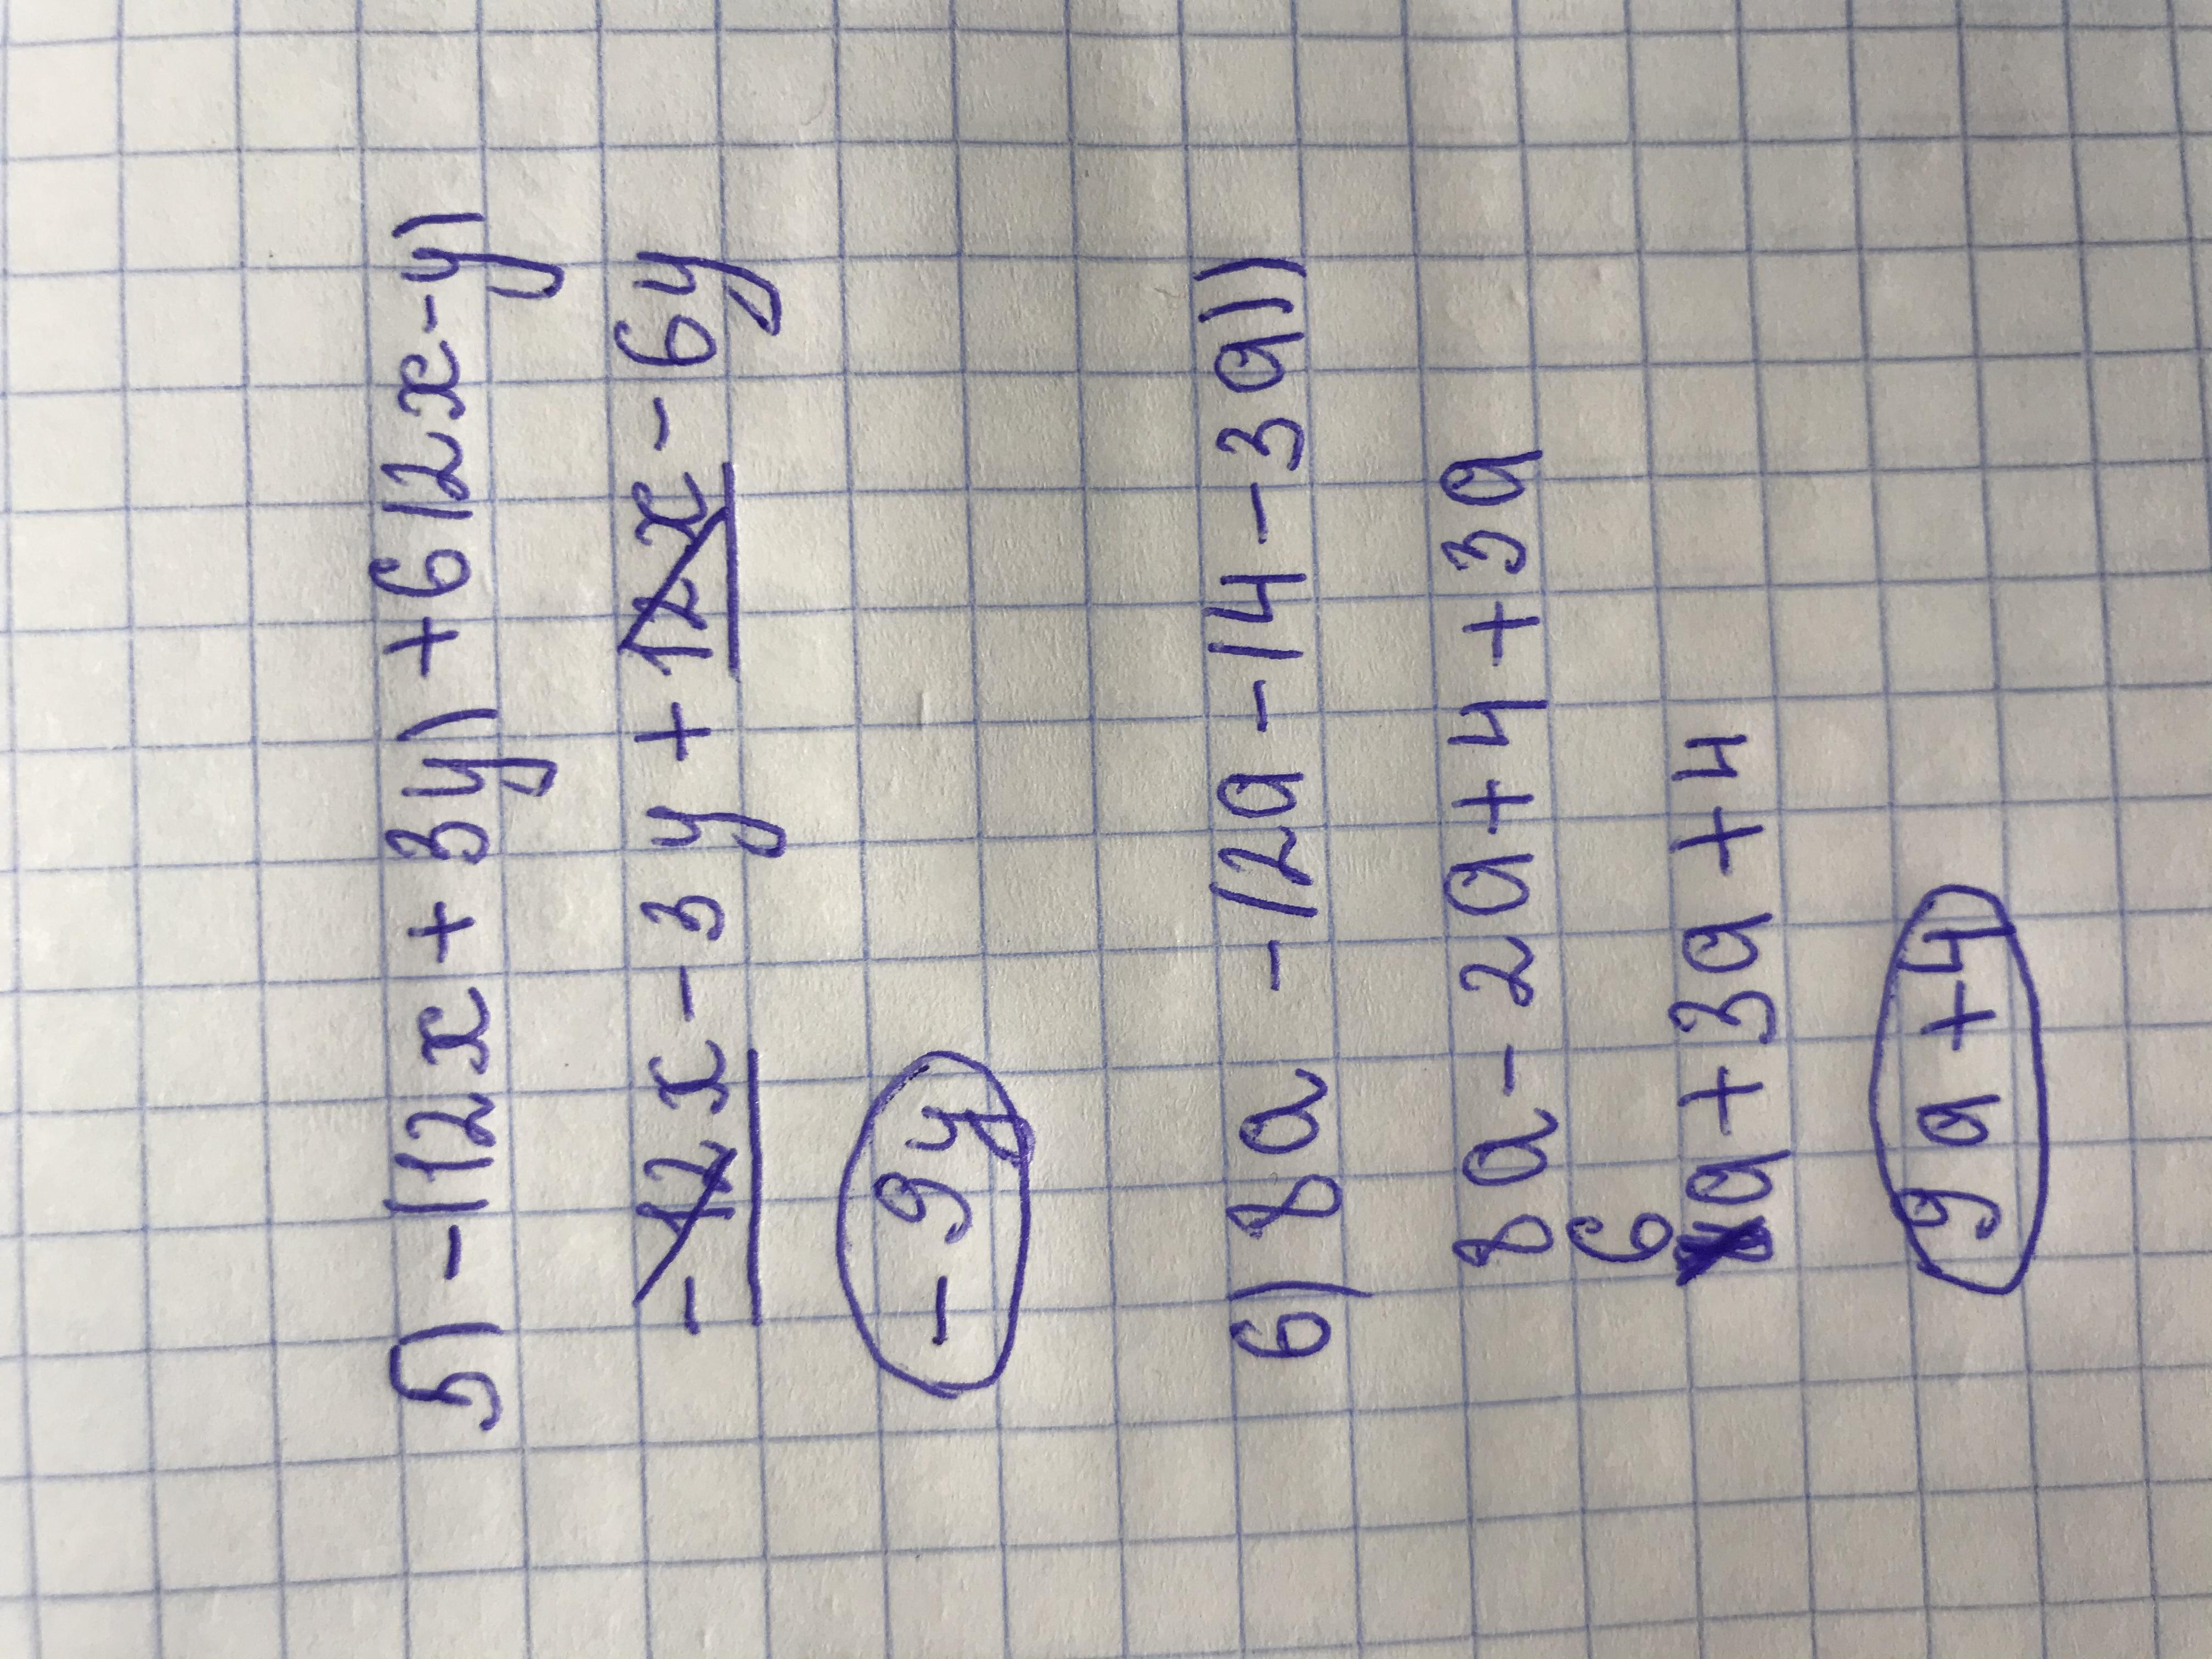 5) -(12x + 3y) + 6(2x - y)
-12x - 3y + 12x - 6y
-9y
6) 8a - (2a - (4 - 3a))
8a - 2a + 4 + 3a
6
a + 3a + 4
9a + 4